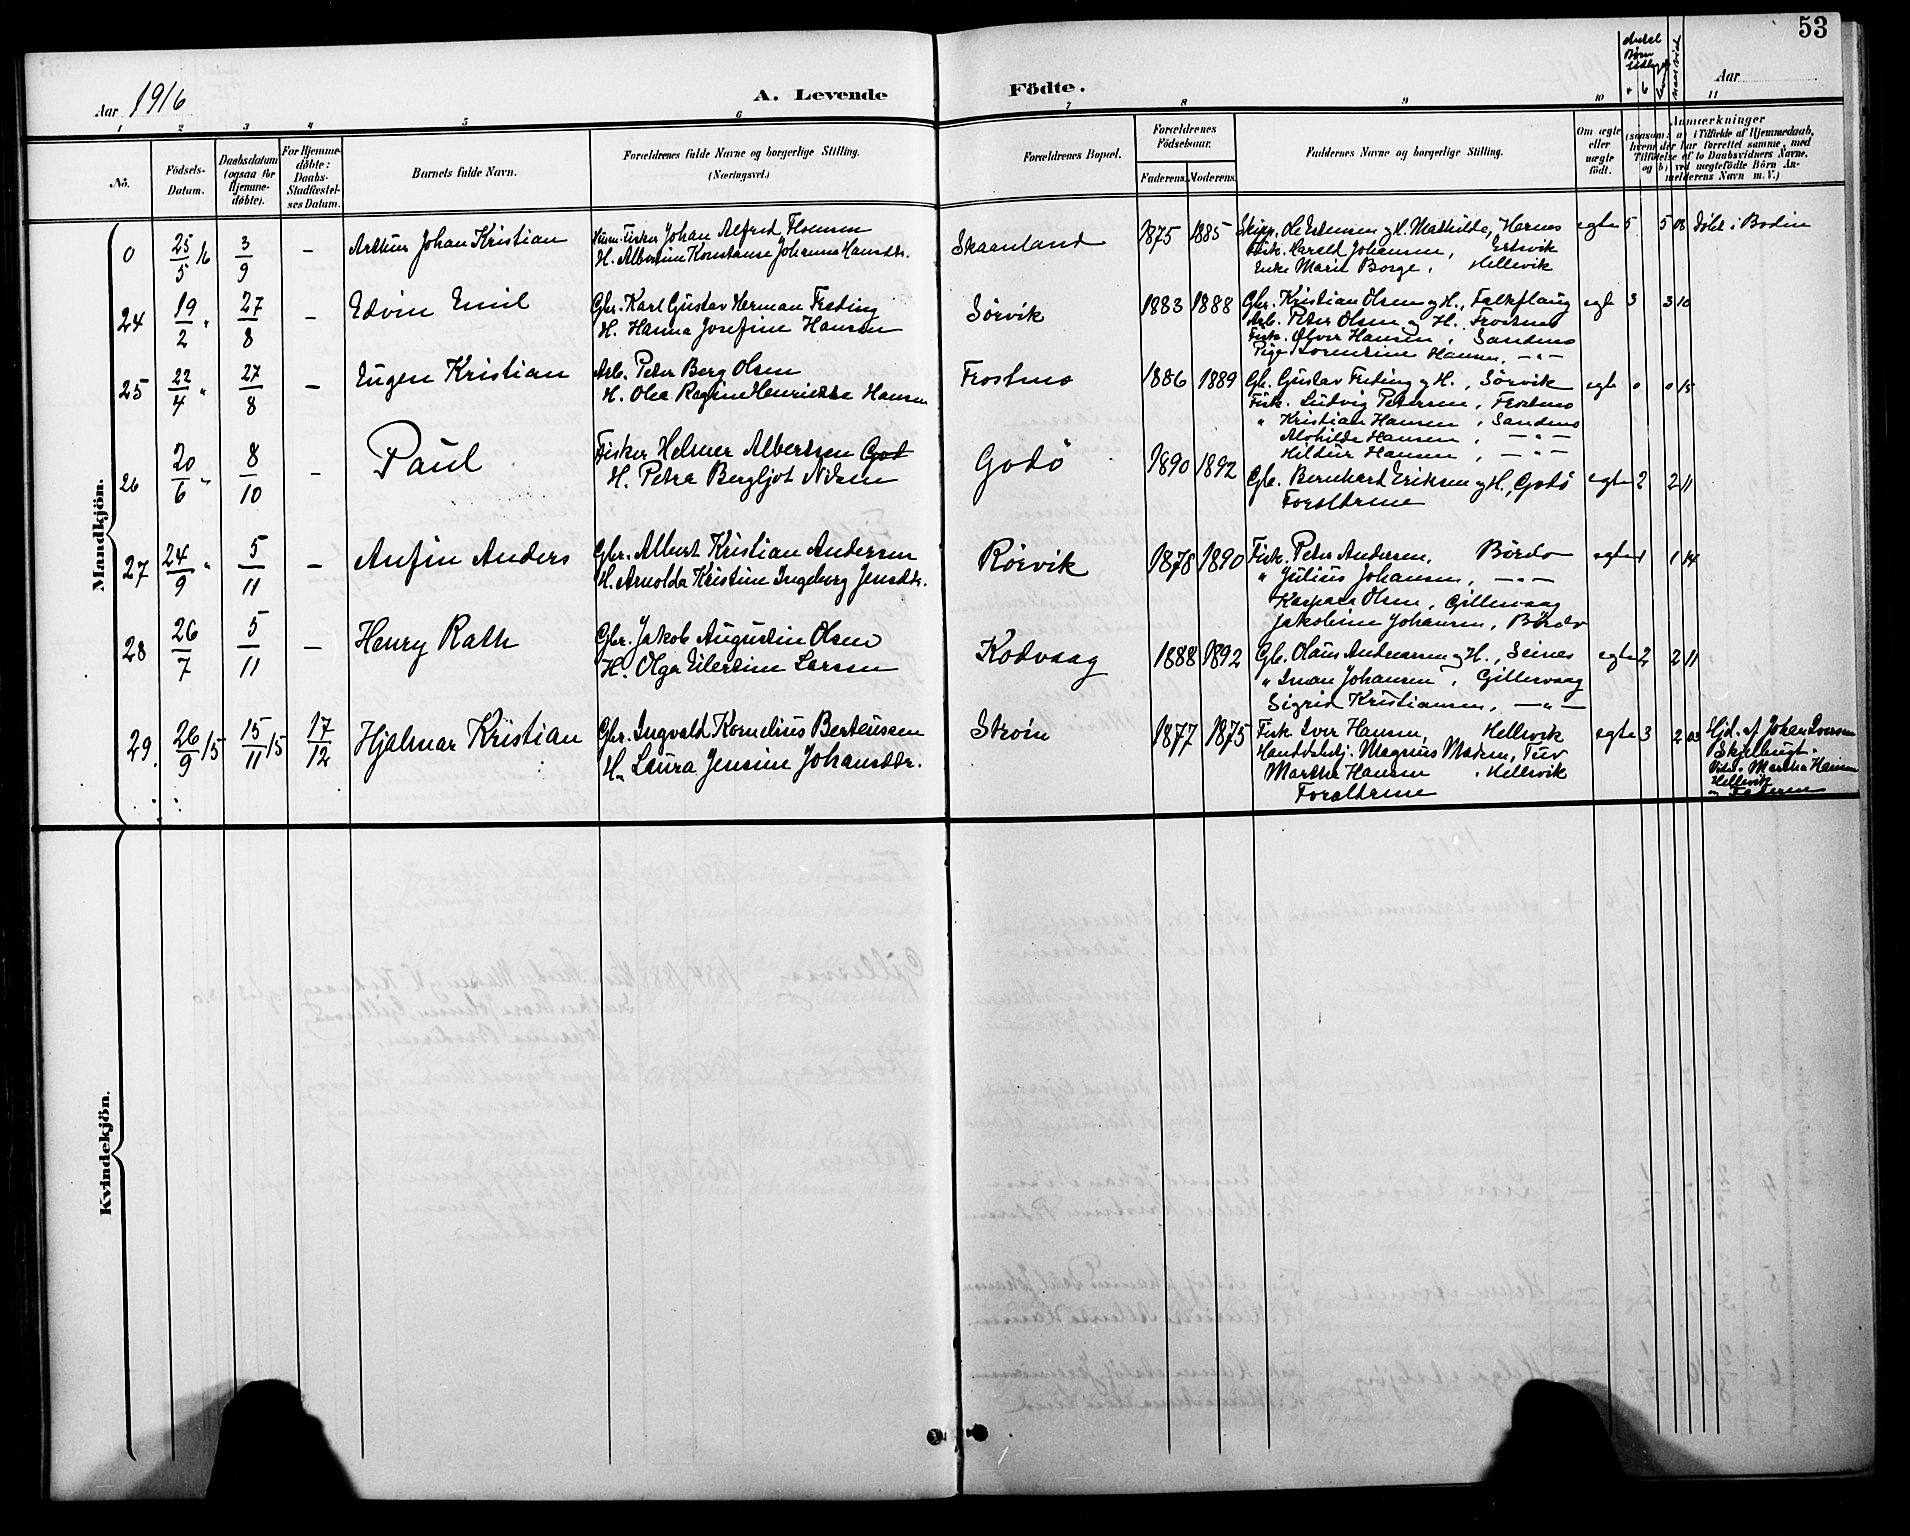 53
Aar 1916
A. Levende Födte.
Aar
Antal
Børn
1 2 3 4 5 6 7 8 9 10 11
No.
Födsels-
Datum.
Daabsdatum
(ogsaa for
Hjemme-
döbte).
For Hjemme-
döbte:
Daabs-
Stadfæstel-
ses Datum.
Barnets fulde Navn.
Forældrenes fulde Navne og borgerlige Stilling.
(Næringsvei.)
Forældrenes Bopæl.
Forældrenes
Födselsaar.
Faderens. Moderens.
Faddernes Navne og borgerlige Stilling.
Om ægte
eller
uægte
födt.
Anmærkninger
(saasom: a) i Tilfælde af Hjemmedaab,
hvem der har forrettet samme, med
Tilföielse af to Daabsvidners Navne,
og b) ved uægtefödte Börn An-
melderens Navn m. V.)
Mandkjön.
0 25/5 16 3/9 — Arthur Johan Kristian
Fisker Johan Alfred
H. Albertine Konstanse Johanna Hansdtr.
Skaanland 1875 1885
Skipp. Ole Estensen og H. Mathilde, Hernes
Fisk. Harald Johansen, Ertsvik
Enke Marie Borge, Hellevik
egte 5 5 08 Døbt i Bodin
24 19/2 " 27/8 — Edvin Emil
Gbr. Karl Gustav Herman Freding
H. Hanna Josefine Hansen
Sørvik 1883 1888
Gbr. Kristian Olsen og H., Falkflaug
Arb. Peter Olsen og H. Frostmo
Fisk. Oliver Hansen, Sandmo
Pige Lorentine Hansen, — " —
egte 3 3 10
25 22/4 " 27/8 — Eugen Kristian
Arb. Peter Berg Olsen
H. Olea Regine Henriette Hansen
Frostmo 1886 1889
Gb. Gustav Freding og H., Sørvik
Fisk. Ludvig Petersen, Frostmo
" Kristian Hansen, Sandmo
Alvhilde Hansen, — " —
Hildur Hansen, — " —
egte 0 0 15
26 20/6 " 8/10 — Paul
Fisker Helmer Albertsen God
H. Petra Bergljot Nilsen
Godø 1890 1892
Gb. Bernhard Eriksen og H., Godø
Forældrene
egte 2 2 11
27 24/9 " 5/11 — Anfin Anders
Gbr. Albert Kristian Andersen
H. Arnolda Kristine Ingeborg Jensdtr.
Rørvik 1878 1890
Fisk. Peter Andersen, Børdo
" Julius Johansen, — " —
Kaspara Olsen, Gillesvaag
Jakobine Johansen, Børdo
egte 1 1 14
28 26/7 5/11 — Henry Rath
Gbr. Jakob Augustin Olsen
H. Olga Eilertine Larsen
Kodvaag 1888 1892
Gb. Olaus Andreassen og H., Seines
" Johansen, Gillesvaag
Sigrid Kristiansen, — " —
egte 2 2 11
29. 26/9 15 15/11 15 17/12 Hjalmar Kristian
Gbr. Ingvald Kornelius Berteussen
H. Laura Jensine Johansdtr.
Strøin 1877 1875
Fisk. Iver Hansen, Hellevik
Handelsbetj. Magnus Madsen, Tuv
Martha Hansen, Hellevik
Forældrene
egte 3 2 03
Hjd. af Johan Iversen
Vid. Martha Hansen
Hellevik
og Faderen
Kvindekjön.